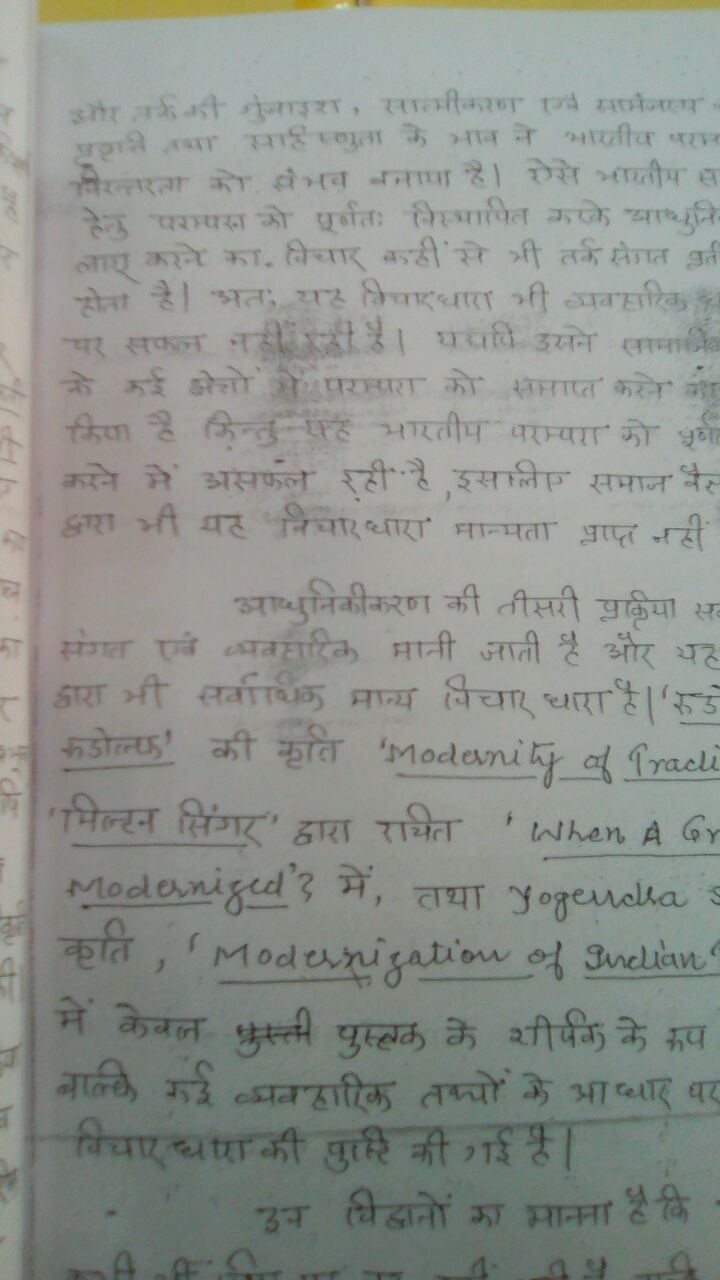 और तर्क की गुंजाइश, सात्मीकरण एवं सामंजस्य
प्रवृत्ति तथा सहिष्णुता के भाव ने भारतीय परम्
निरन्तरता को संभव बनाया है। ऐसे भारतीय स
हेतु परम्परा को पूर्णतः विस्थापित करके आधुनि
लाए करने का विचार कहीं से भी तर्क संगत प्रती
होता है। अतः यह विचारधारा भी व्यवहारिक
पर सफल नहीं रही है। यद्यपि इसने सामाजिक
के कई क्षेत्रों में परम्परा को समाप्त करने का
किया है किन्तु यह भारतीय परम्परा को पूर्णत
करने में असफल रही है, इसलिए समाज वैज्
द्वारा भी यह विचारधारा मान्यता प्राप्त नहीं
आधुनिकीकरण की तीसरी प्रक्रिया सर्
संगत एवं व्यवहारिक मानी जाती है और यह
द्वारा भी सर्वाधिक मान्य विचारधारा है। 'रुडो
रुडोल्फ' की कृति 'Modernity of Tradi
'मिल्टन सिंगर' द्वारा रचित 'When A Gr
Modernized'? में, तथा Yogendra S
कृति, 'Modernization of Indian T
में केवल पुस्तक के शीर्षक के रूप
बल्कि कई व्यवहारिक तथ्यों के आधार पर
विचारधारा की पुष्टि की गई है।
इन विद्वानों का मानना है कि